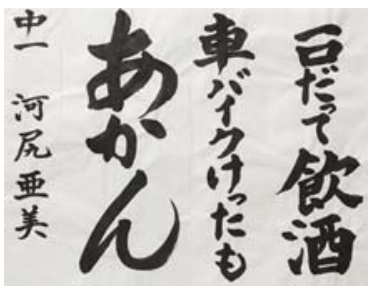 一口だって飲酒
車バイクけったも
あかん
中一 河尻亜美